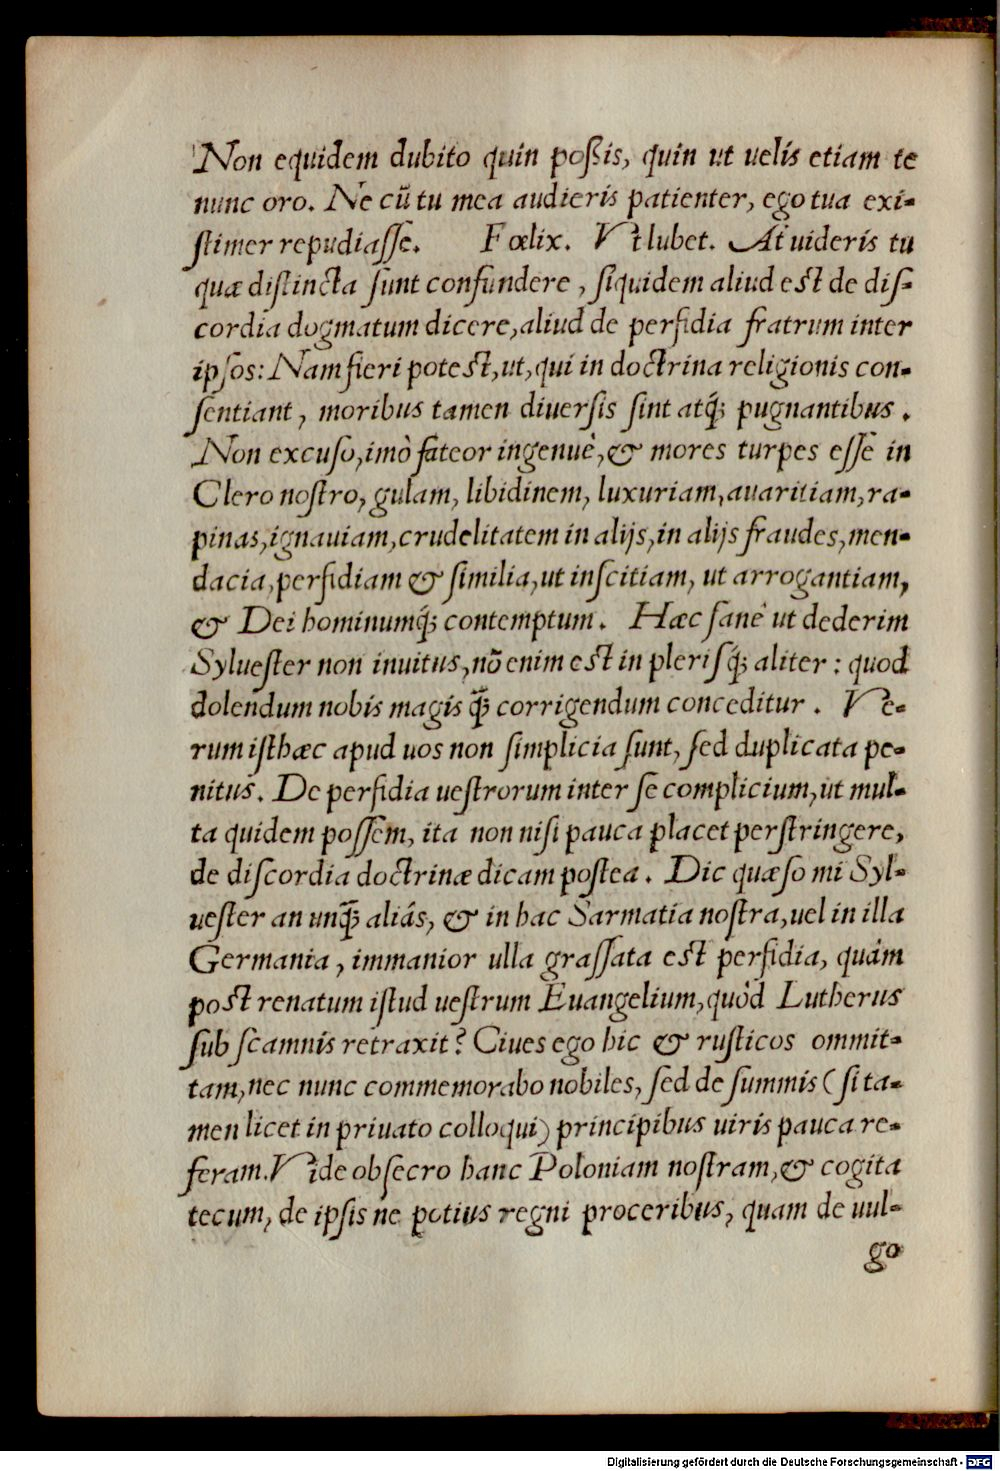 Non equidem dubito quin poßis, quin ut uelis etiam te
nunc oro. Ne cū tu mea audieris patienter, ego tua exi-
ſtimer repudiaſſe. Fœlix. Vt lubet. At uideris tu
quæ diſtincta ſunt confundere, ſiquidem aliud eſt de diſ-
cordia dogmatum dicere, aliud de perfidia fratrum inter
ipſos: Nam fieri poteſt, ut, qui in doctrina religionis con-
ſentiant, moribus tamen diuerſis ſint atq́; pugnantibus.
Non excuſo, imò fateor ingenuè, & mores turpes eſſe in
Clero noſtro, gulam, libidinem, luxuriam, auaritiam, ra-
pinas, ignauiam, crudelitatem in alijs, in alijs fraudes, men-
dacia, perfidiam & ſimilia, ut inſcitiam, ut arrogantiam,
& Dei hominumq́; contemptum. Hæc ſanè ut dederim
Sylueſter non inuitus, nō enim eſt in pleriſq́; aliter: quod
dolendum nobis magis q̃ꝫ corrigendum conceditur. Ve-
rum iſthæc apud uos non ſimplicia ſunt, ſed duplicata pe-
nitus. De perfidia ueſtrorum inter ſe complicium, ut mul-
ta quidem poſſem, ita non niſi pauca placet perſtringere,
de diſcordia doctrinæ dicam poſtea. Dic quæſo mi Syl-
ueſter an unq̃ꝫ aliâs, & in hac Sarmatia noſtra, uel in illa
Germania, immanior ulla graſſata eſt perfidia, quàm
poſt renatum iſtud ueſtrum Euangelium, quòd Lutherus
ſub ſcamnis retraxit? Ciues ego hic & ruſticos ommit-
tam, nec nunc commemorabo nobiles, ſed de ſummis (ſi ta-
men licet in priuato colloqui) principibus uiris pauca re-
feram. Vide obſecro hanc Poloniam noſtram, & cogita
tecum, de ipſis ne potius regni proceribus, quam de uul-
go
Digitalisierung gefördert durch die Deutsche Forschungsgemeinschaft - DFG